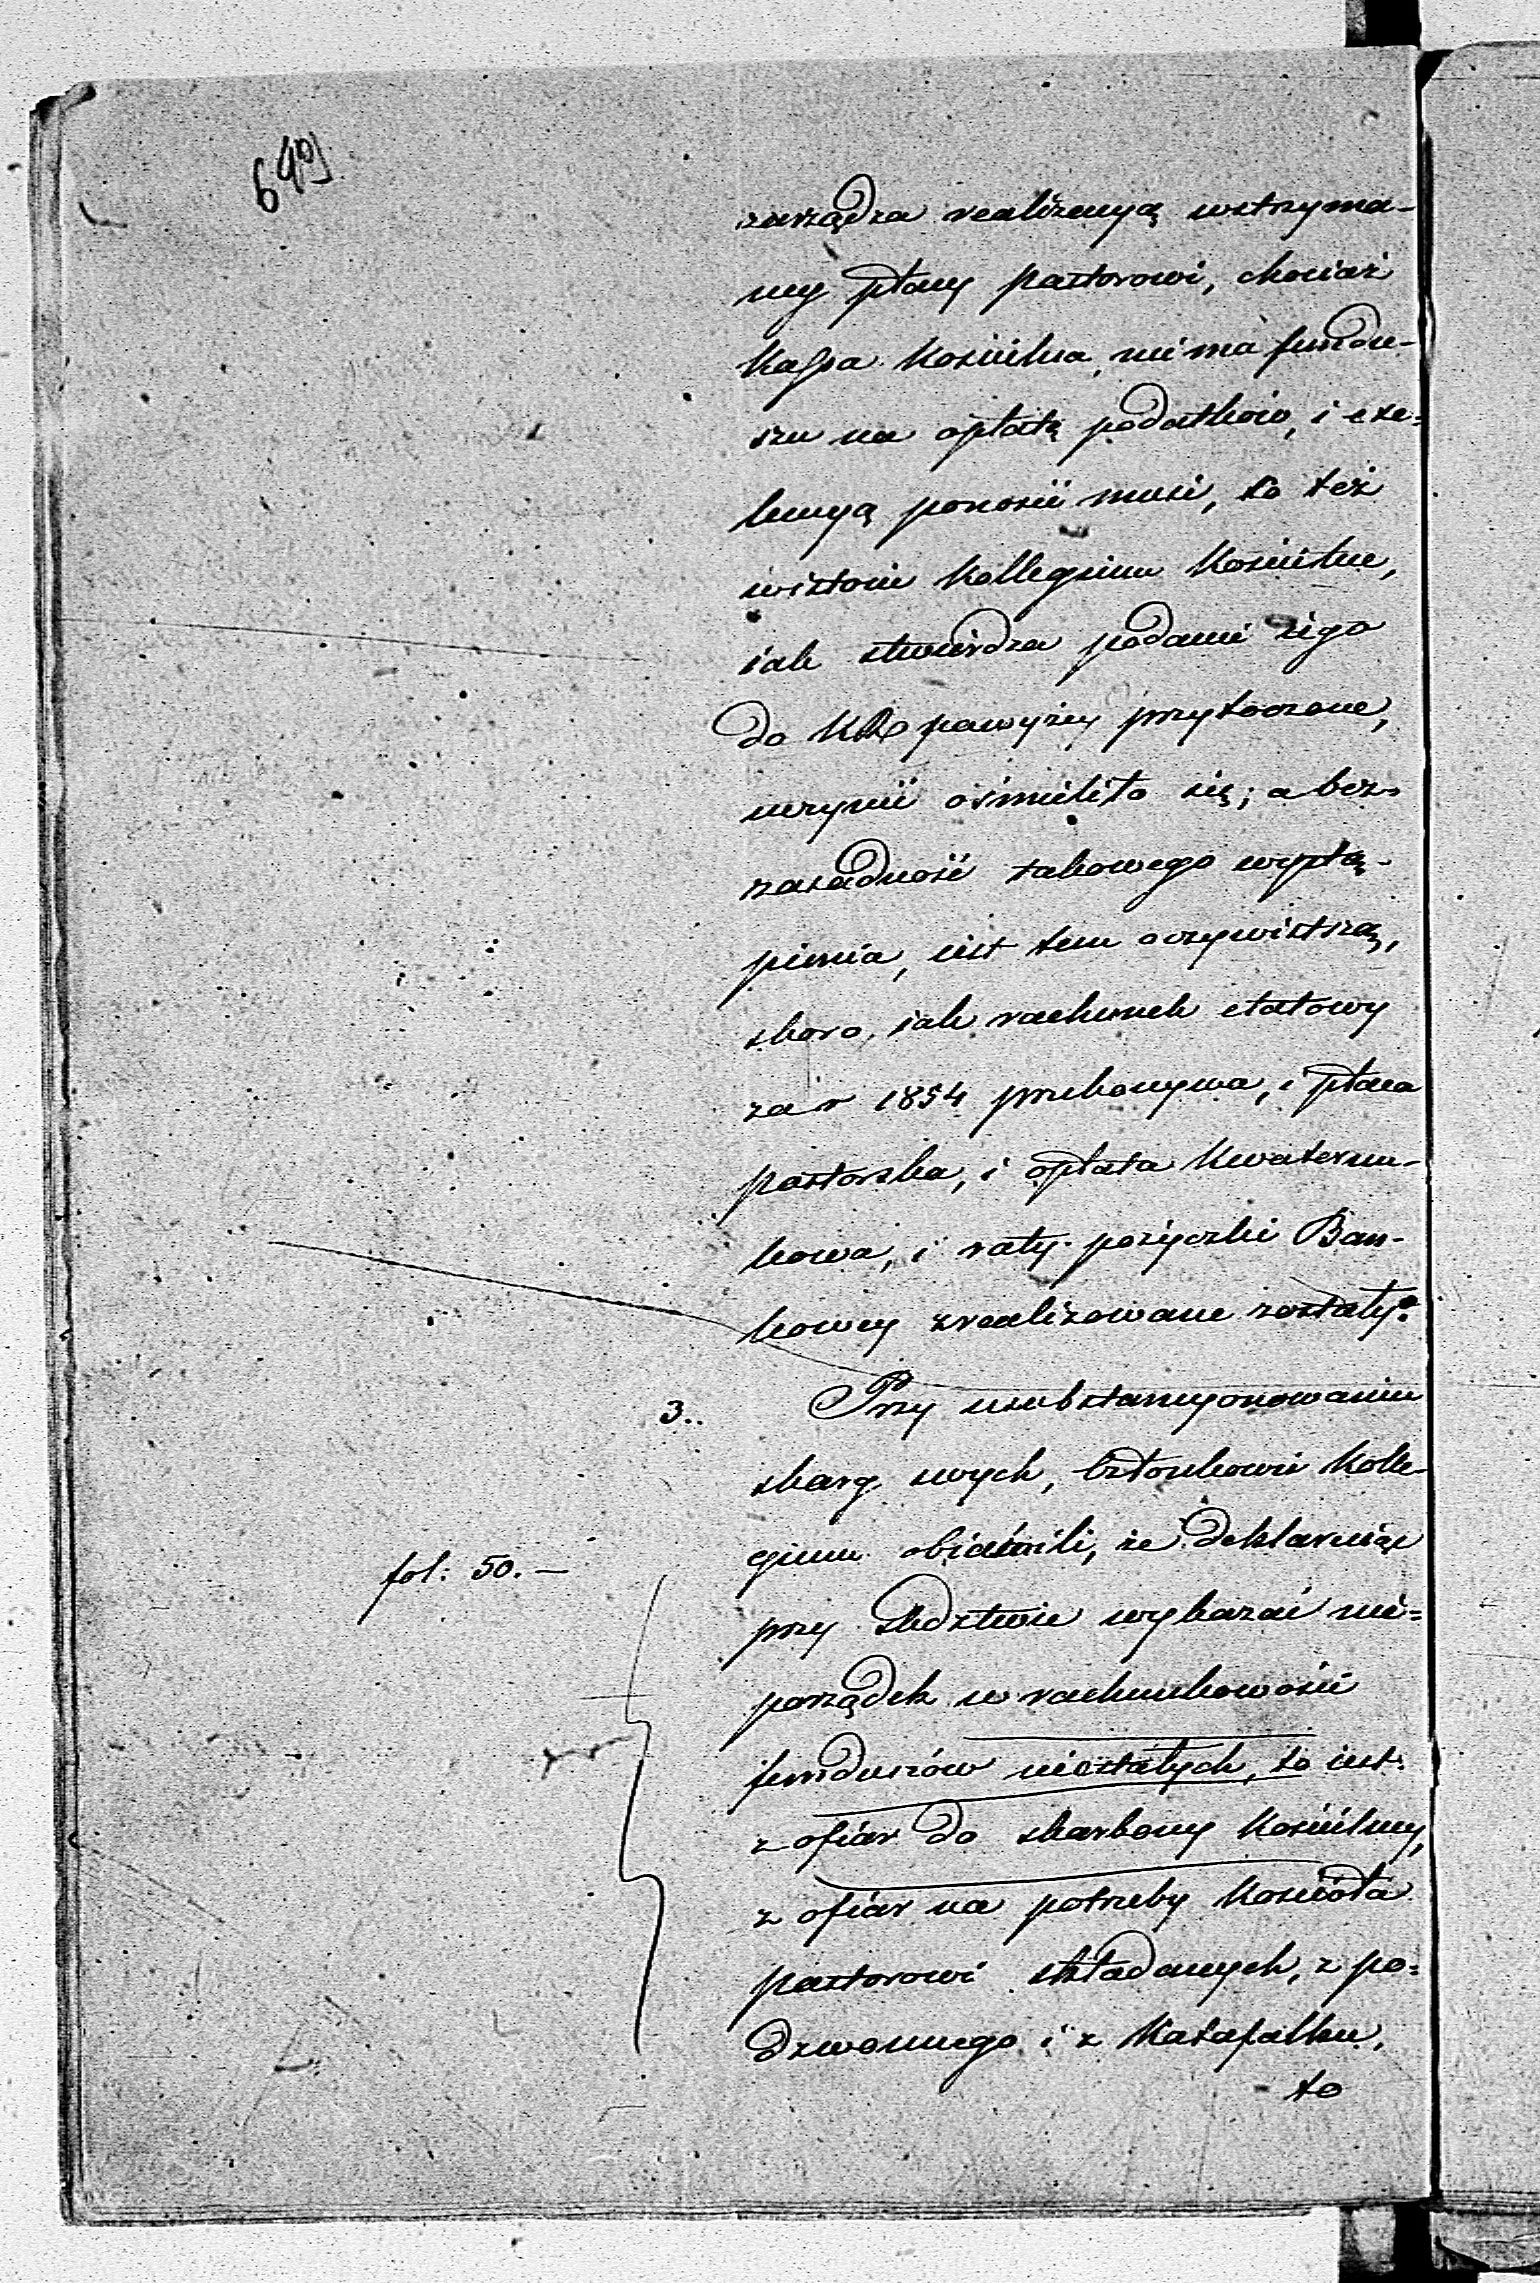 649
zarządza realizacyą wstrzyma-
ney płacy pastorowi, chociaż
Kassa Kościelna nie ma fundu-
szu na opłatę podatków, i exe-
kucyą ponosić musi, to też
istotnie Kollegium Kościelne,
iak stwierdza podanie iego
do KR powyżey przytoczone,
uczynić ośmieliło się; a bez-
zasadność takowego wystą-
pienia, iest tem oczywistszą,
skoro, iak rachunek etatowy
za r 1854 przekonywa, i płaca
pastorska, i opłata kwaterun-
kowa, i raty pożyczki Ban-
kowey zrealizowane zostały.
3. Przy usubstancyonowaniu
skarg swych, Członkowie Kolle-
gium obiaśnili, że deklaruiąc
przy śledztwie wykazać nie-
porządek w rachunkowości
fol: 50. —
funduszów niestałych, to iest:
z ofiar do skarbony Kościelney,
z ofiar na potrzeby Kościoła
pastorowi składanych, z po-
dzwonnego i z Katafalku,
to